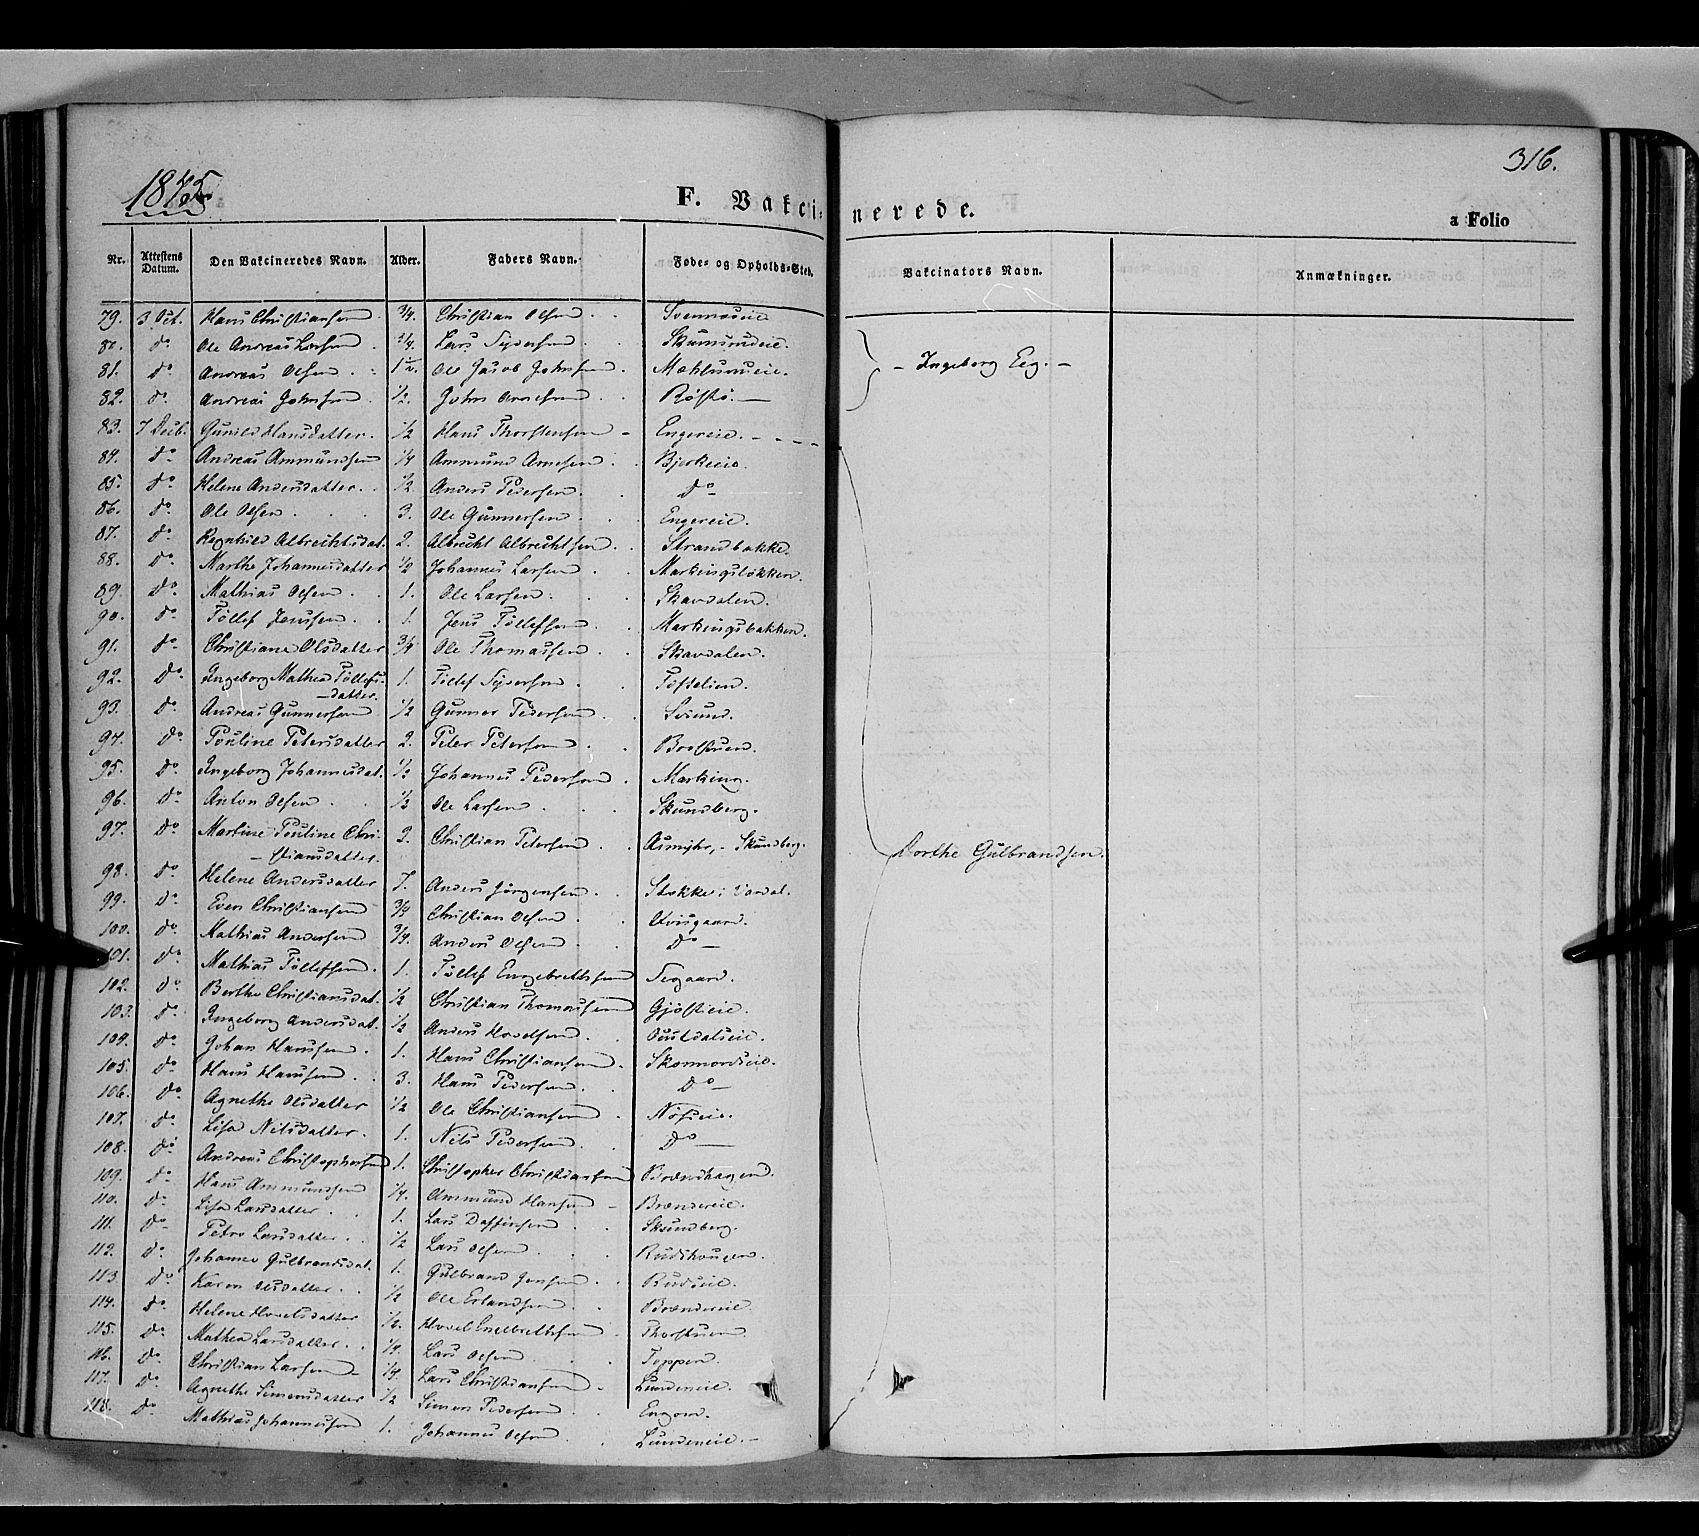 1845.
316.
F. Vakci- nerede.
a Folio
Nr. Attestens Datum. Den Vakcineredes Navn. Alder. Faders Navn. Føde- og Opholds-Sted. Vakcinators Navn. Anmækninger.
79. 3 Oct. Hans Christiansen 3/4. Christian Olsen
80. do Ole Andreas Larsen Lars Syversen Skumsrudeie.
81. do Andreas Olsen Ole Jacob Johnsen Mæhlumseie. - Ingeborg Eeg. -
82. do Andreas Johnsen 1/2. John Arnesen Røstø.
83. 7 Decb. Gunild Hansdatter. 1/2 Hans Thorstensen - Engereie.
84. do Andreas Ammundsen 1/4 Ammund Arnesen Bjerkeeie.
85. do Helene Andersdatter. 1/2 Anders Pedersen. do
86. do Ole Olsen 3. Ole Gunnersen Engereie.
87. do Ragnhild Albrechtsdat. 2. Albrecht Albrechtsen Strandbakke.
88. do Marthe Johannesdatter 1/2 Johannes Larsen Markingsløkken.
89. do Mathias Olsen 1. Ole Larsen. Skavdalen.
90. do Tollef Jensen 1. Jens Tollefsen Markingsbakken.
91. do Christiane Olsdatter 3/4 Ole Thomassen Skavdalen.
92. do Ingeborg Mathea Tollefs- 1. Tollef Syversen Toftelien.
-datter.
93. do Andreas Gunnersen 1/2 Gunner Pedersen
94. do Pouline Petersdatter 2. Peter Petersen Brostuen.
95. do Ingeborg Johannesdat. 1/2 Johannes Pedersen Marking.
96. do Anton Olsen 1/2 Ole Larsen Skundberg.
97. do Martine Pouline Chri- 2. Christian Petersen Aasmyhr, - Skundberg.
-stiansdatter. Dorthe Gulbrandsen.
98. do Helene Andersdatter 7. Anders Jørgensen Stokke i Vardal.
99. do Even Christiansen 3/4 Christian Olsen
100. do Mathias Andersen 3/4. Anders Olsen do
101. do Mathias Tollefsen. 1. Tollef Engebrethsen
102. do Berthe Christiansdat. 1/2 Christian Thomassen Gjøsteie.
103. do Ingeborg Andersdat. 1/2 Anders Hovelsen
104. do Johan Hansen. 1. Hans Christiansen
105. do Hans Hansen 3. Hans Pedersen. do
106. do Agnethe Olsdatter 1/2 Ole Christiansen Nøseie.
107. do Lisa Nilsdatter. 1. Nils Pedersen do
108. do Andreas Christophersen 1. Christopher Christiansen Brændhagen.
109. do Hans Ammundsen 1/4. Ammund Hansen - Brændereie.
110. do Lisa Larsdatter 1. Lars Daffinsen Skundberg.
111. do Petra Larsdatter 1/2 Lars Olsen Rudshougen.
112. do Johanne Gulbrandsdat. 1. Gulbrand Jensen Rudseie.
113. do Karen Olsdatter 1/2 Ole Erlandsen Brændereie.
114. do Helene Hovelsdatter Hovel Engebrethsen Thorstuen
115. do Mathea Larsdatter 1/4. Lars Olsen Toppen.
116. do Christian Larsen 1/4. Lars Christiansen Lundeneie.
117. do Agnethe Simensdatter 1/2 Simen Pedersen Engom.
118. do Mathias Johannesen 1. Johannes Olsen Lundeneie.